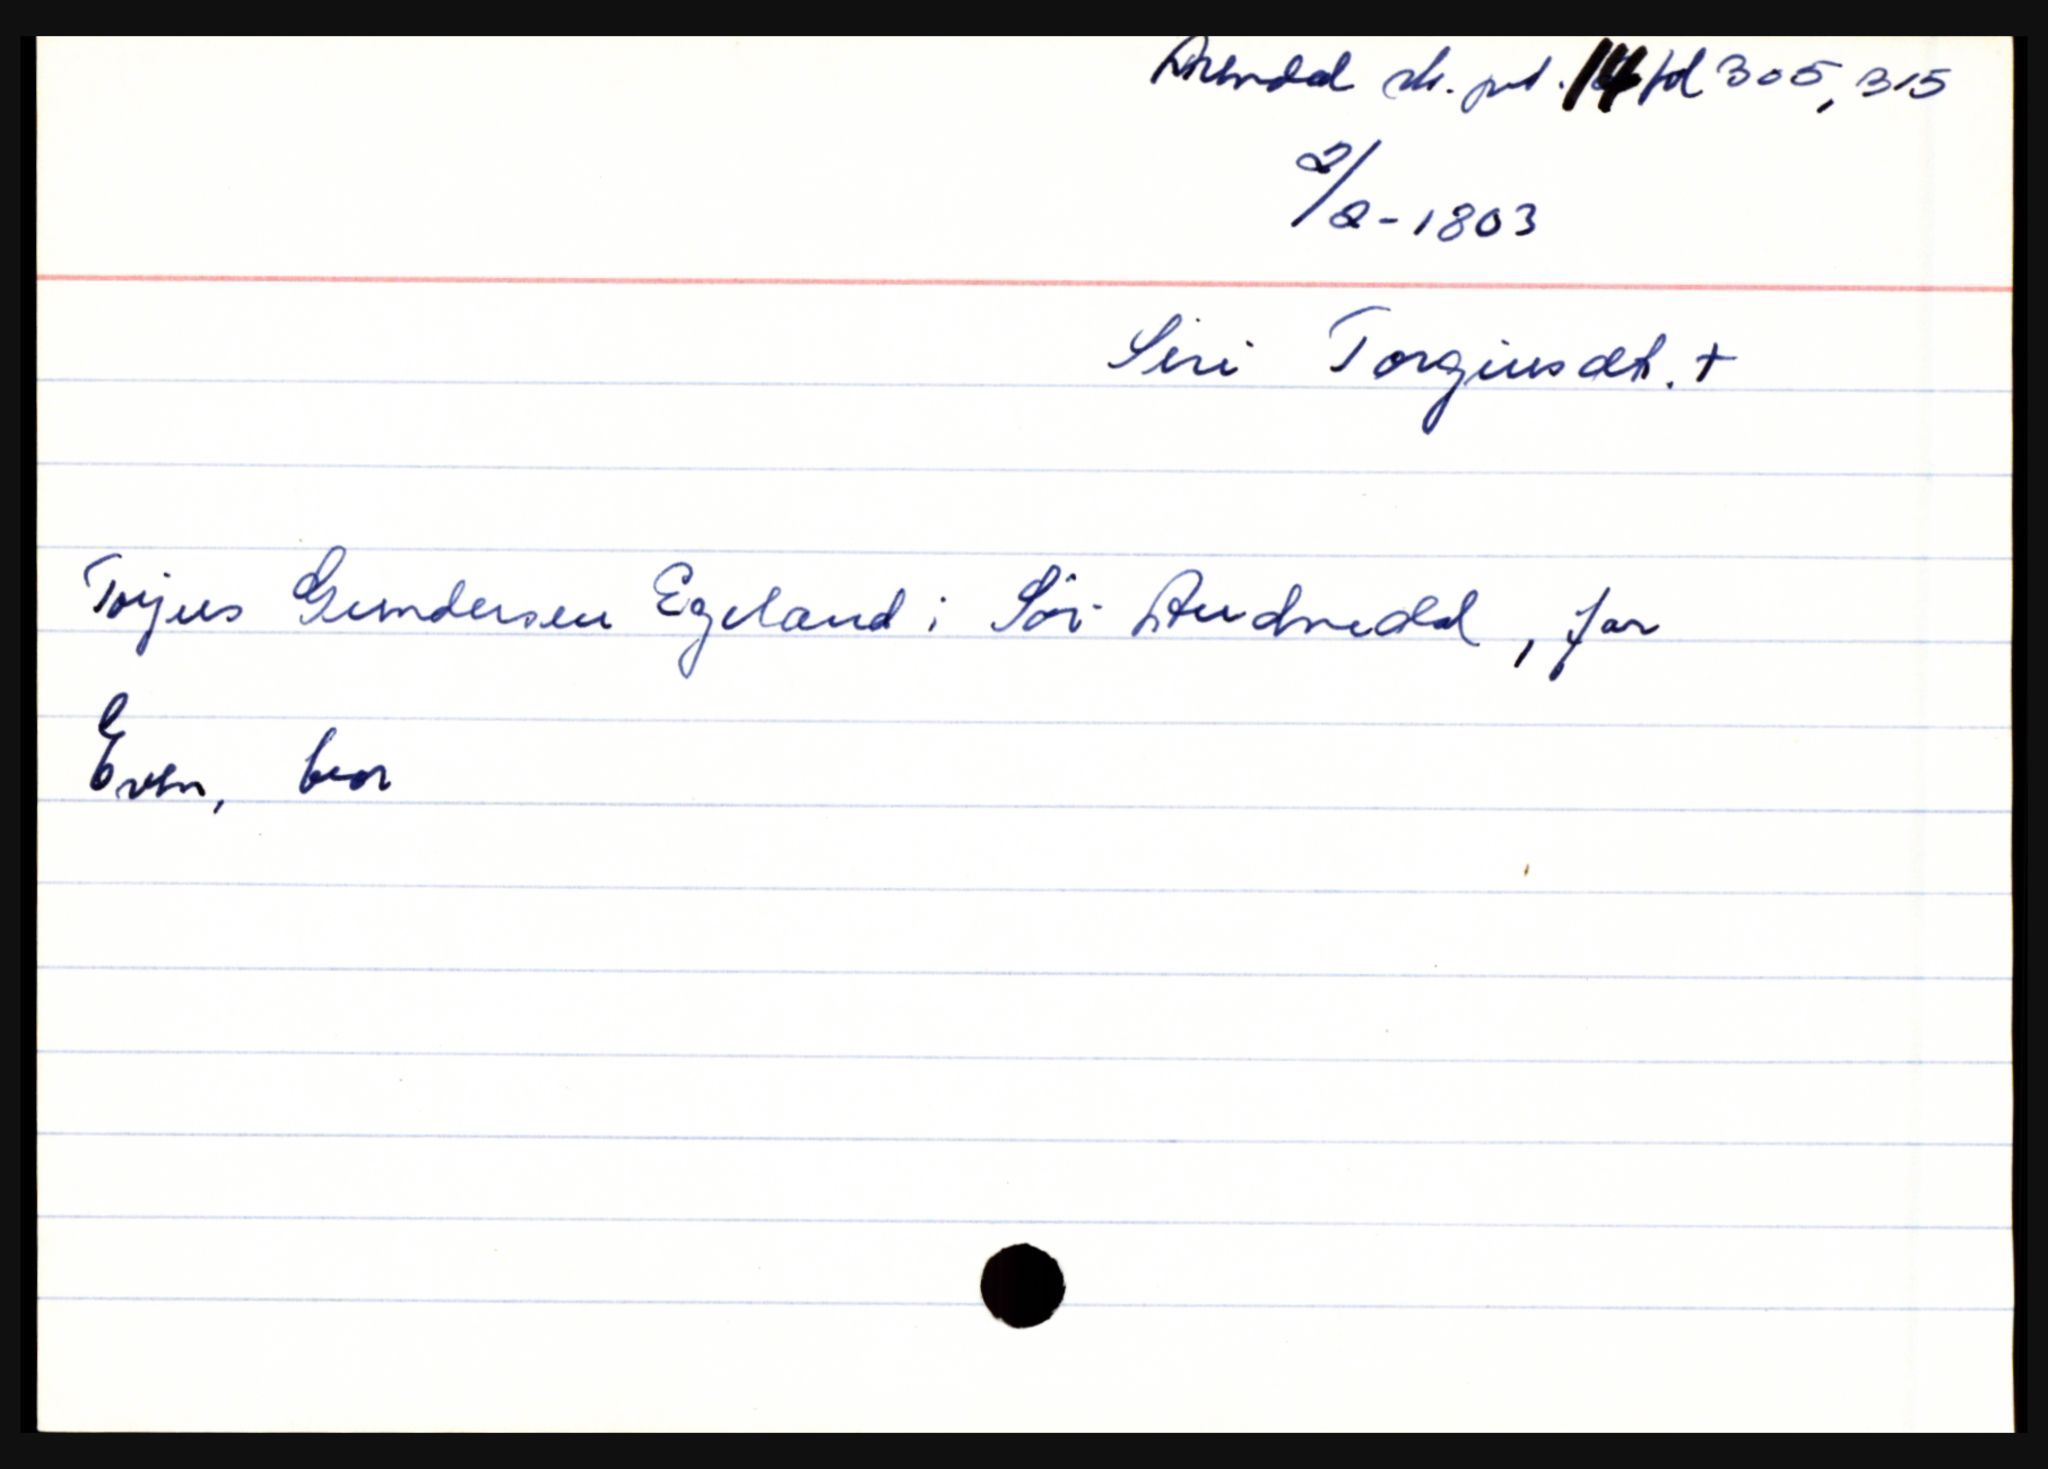 Arendal sk. prot. 14 fol 305, 315
2/2-1803
Siri Torgiusdt. +
Torjus Gundersen Egeland i Sør-Audnedal, far
Even, bror